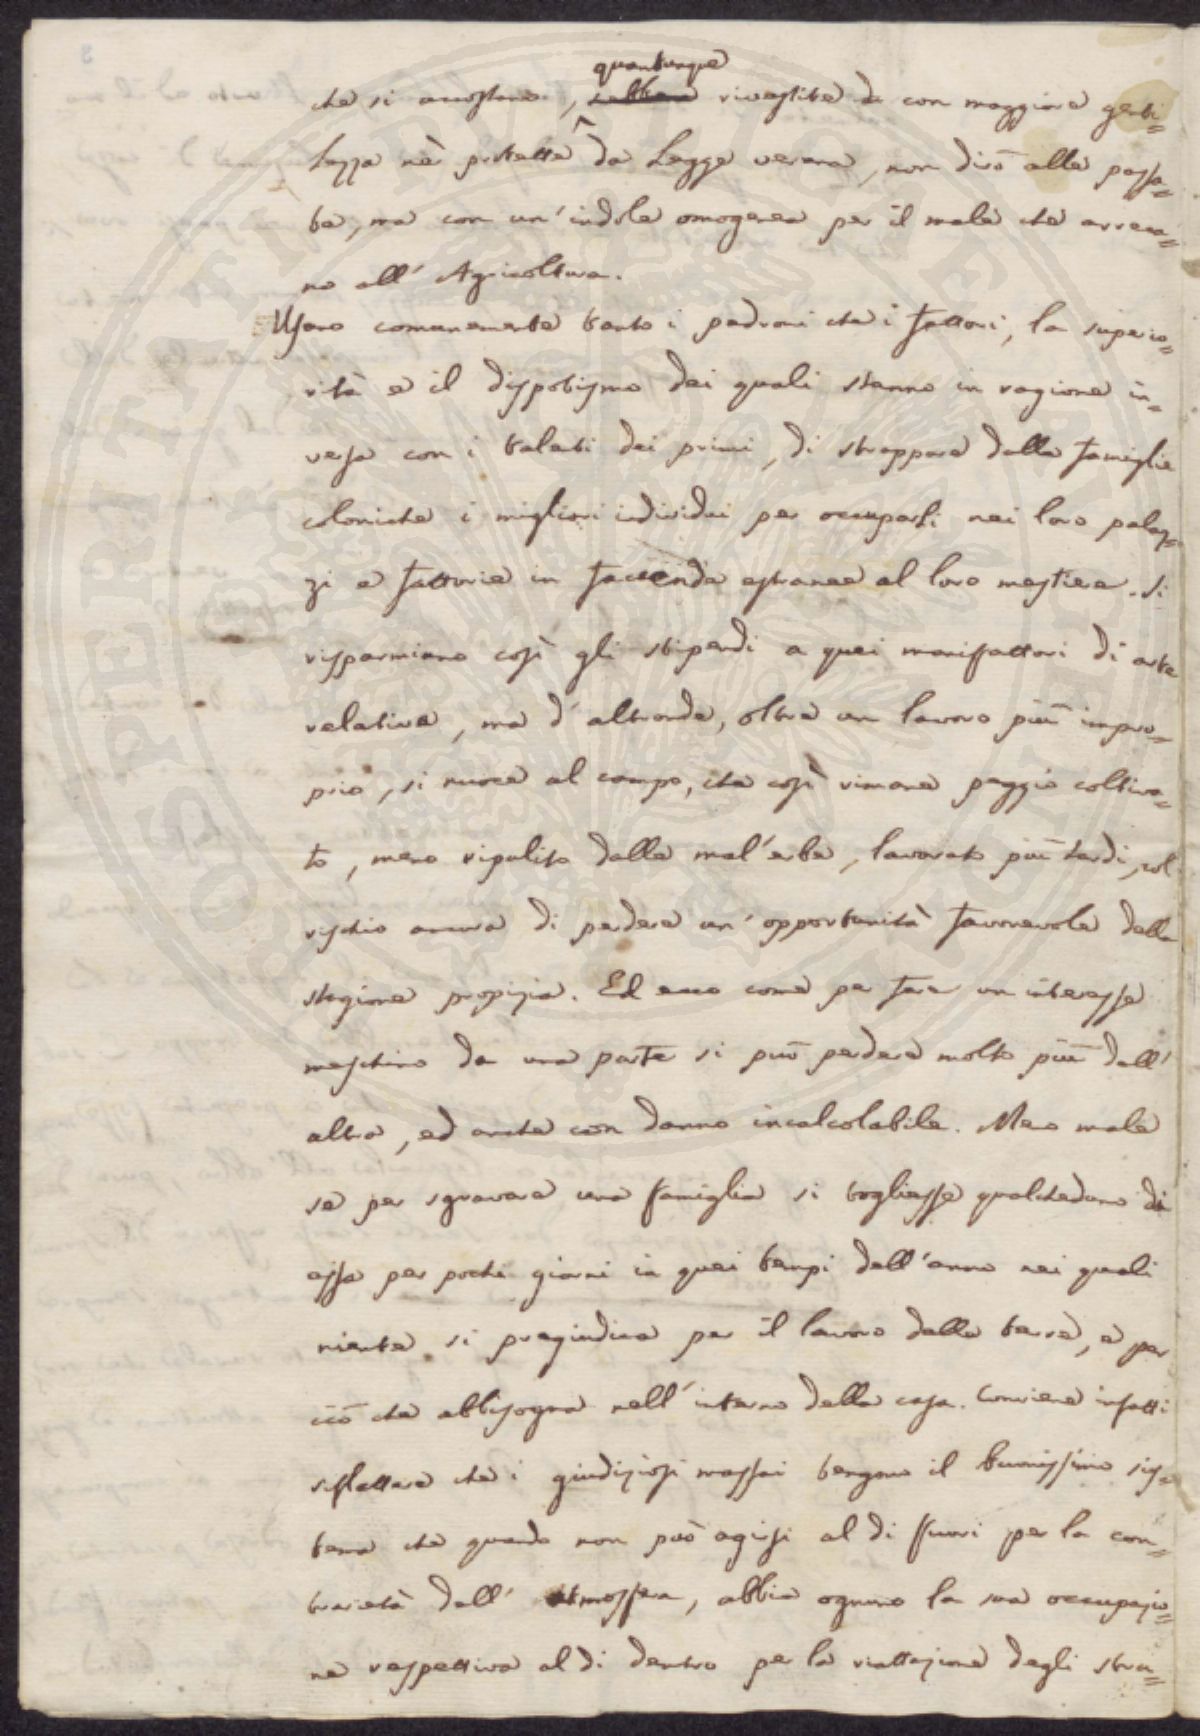 quantunque
che si accostano, sebbene rivestite da con maggiore genti=
lezza nè protette da Legge verana, non dirò alle passa=
te, ma con un' indole omogenea per il male che arreca=
no all' Agricoltura.
Usano comunemente tanto i padroni che i Fattori, la superio=
rità e il dispotismo dei quali stanno in ragione in=
versa con i talenti dei primi, di strappare dalle Famiglie
coloniche i migliori individui per occuparli nei loro palaz=
zi e Fattorie in Faccende estranee al loro mestiere. Si
risparmiano così gli stipendi a quei manifattori di arte
relativa, ma d' altronde, oltre un lavoro più impro=
prio, si nuoce al campo, che così rimane peggio coltiva=
to, meno ripulito dalle mal' erbe, lavorato più tardi, col
rischio ancora di perdere un' opportunità Favorevole della
stagione propizia. Ed ecco come per Fare un interesse
meschino da una parte si può perdere molto più dall'
altra, ed anche con danno incalcolabile. Meno male
se per sgravare una famiglia si togliesse qualcheduno di
essa per pochi giorni in quei tempi dell' anno nei quali
niente si pregiudica per il lavoro della terra, e per
ciò che abbisogna nell' interno della casa. Conviene infatti
riflettere che i giudiziosi massai tengono il buonissimo sis=
tema che quando non può agirsi al di fuori per la con=
trarietà dell' atmosfera, abbia ognuno la sua occupazio=
ne respettiva al di dentro per la riattazione degli stru=